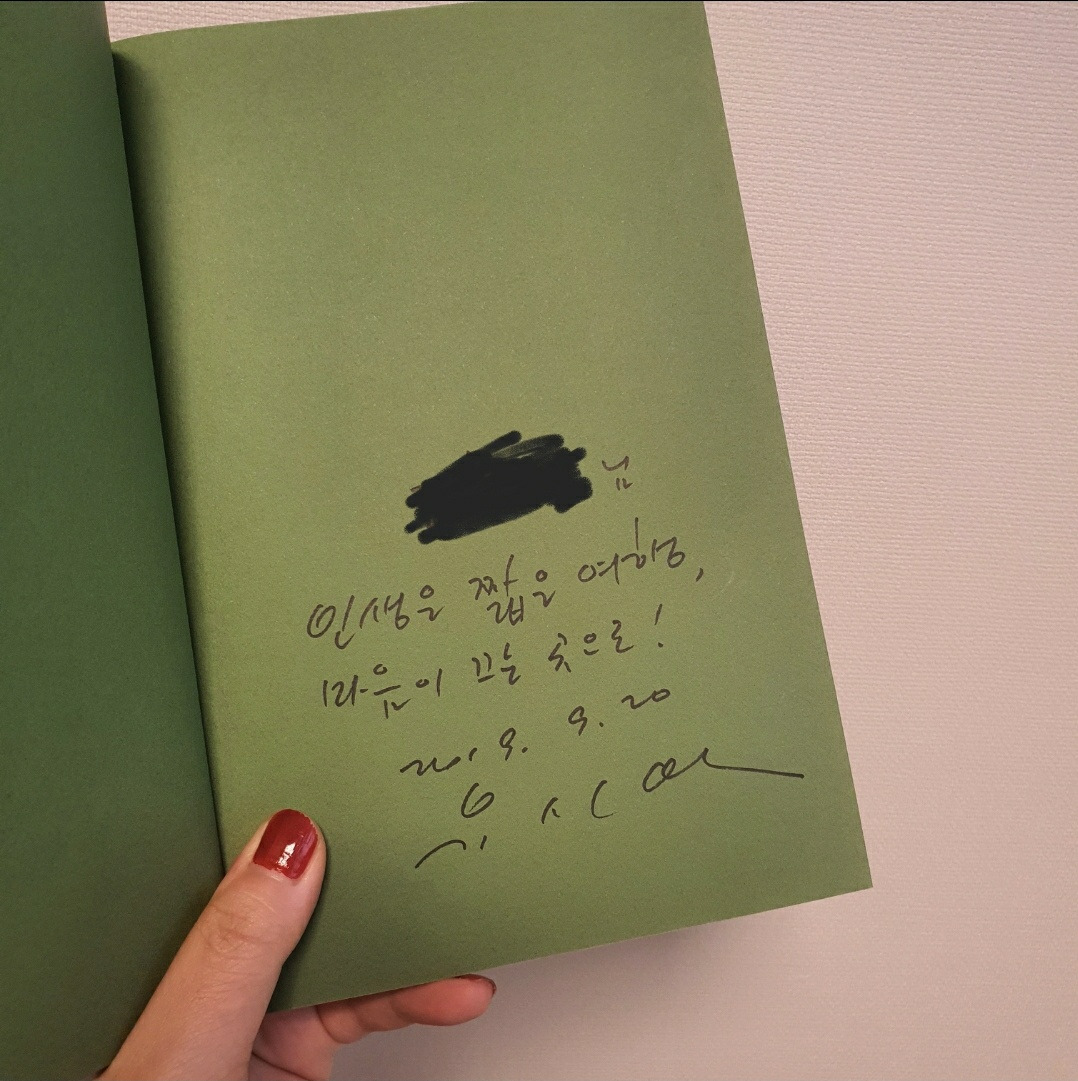 님
인생은 짧은 여행,
마음이 끄는 곳으로!
2019. 9. 20